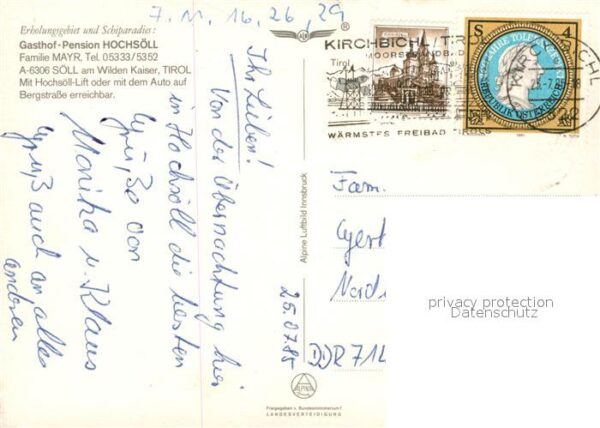 7. 11. 16, 26, 29
Erholungsgebiet und Schiparadies:
Gasthof-Pension HOCHSÖLL
Familie MAYR, Tel. 05333/5352
A-6306 SÖLL am Wilden Kaiser, TIROL
Mit Hochsöll-Lift oder mit dem Auto auf
Bergstraße erreichbar.
Ihr Lieben!
Von der Übernachtung hier
in Hochsöll die besten
Grüße von
Monika u. Klaus
Gruß auch an alle
anderen
25.07.85
Alpine Luftbild Innsbruck
®
KIRCHBICHL / TIROL
MOORSTRANDBAD
Tirol
WÄRMSTES FREIBAD TIROLS
S 4
REPUBLIK ÖSTERREICH
KIRCHBICHL
Fam.
Gert
DDR 714
privacy protection
Datenschutz
ALPINE
Freigegeben v. Bundesministerium f.
LANDESVERTEIDIGUNG